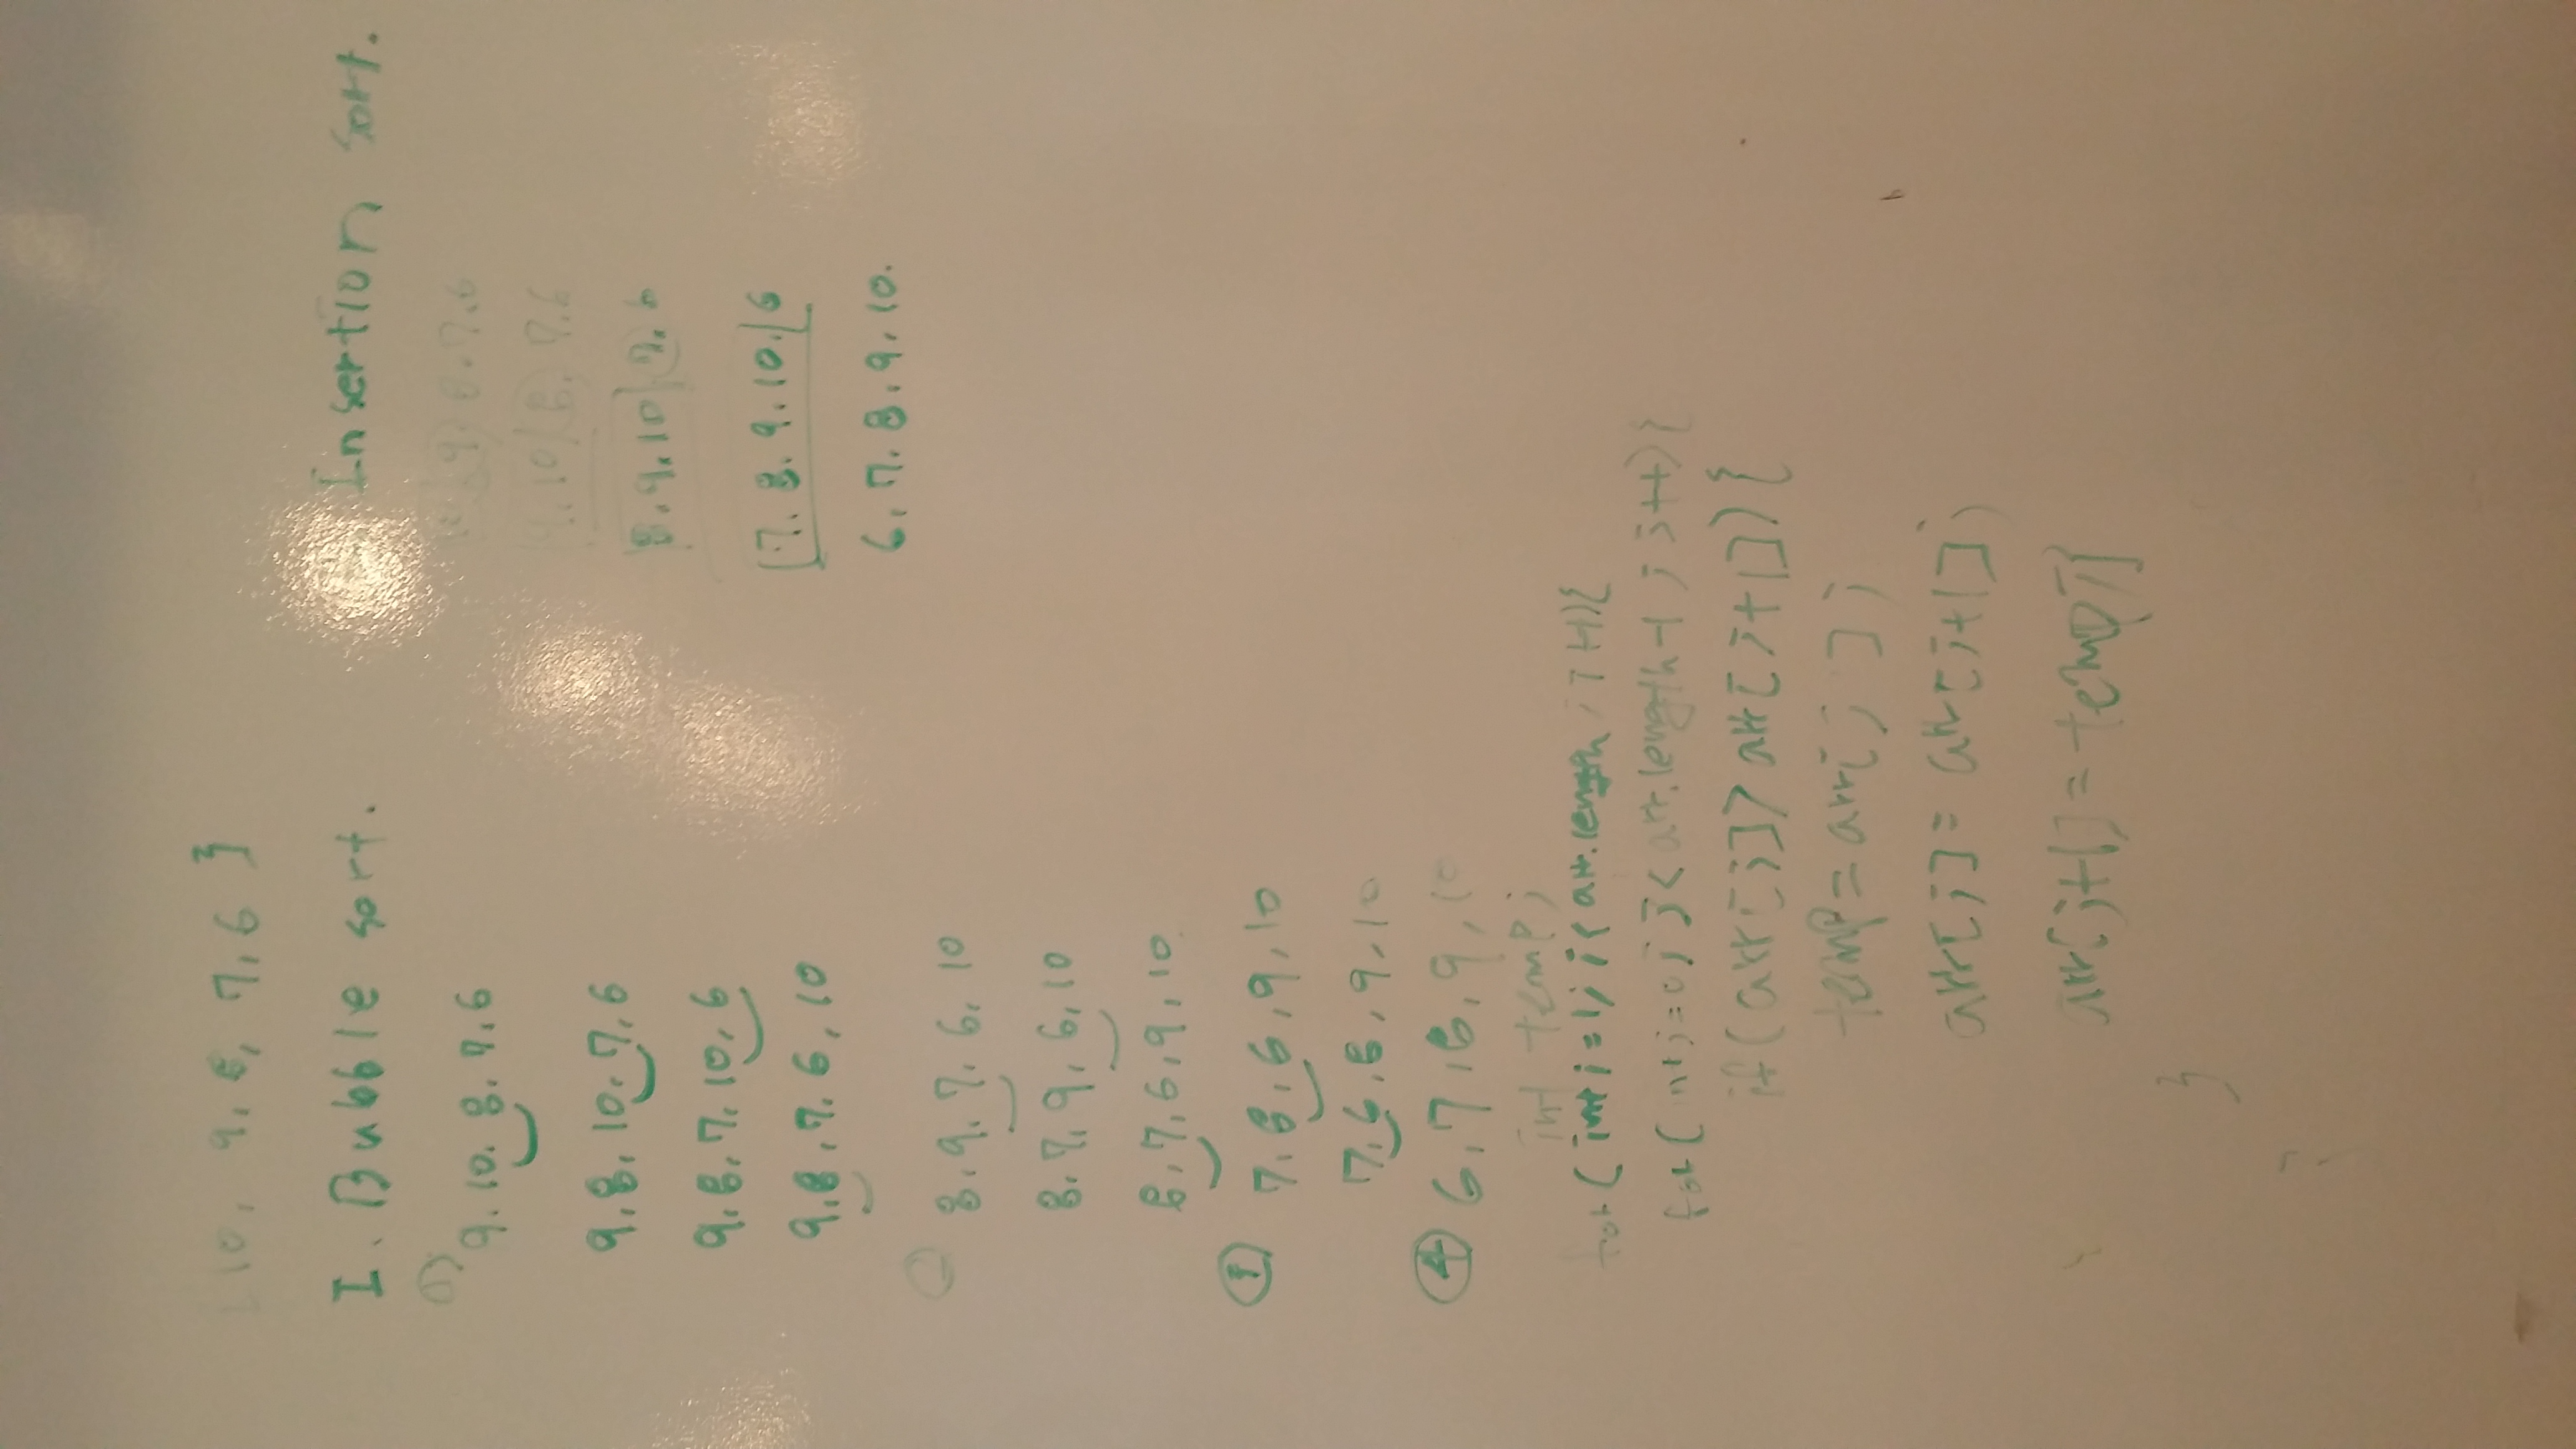 {10, 9, 8, 7, 6 }
I. Bubble sort.
① 9. 10. 8. 7. 6
9, 8, 10, 7, 6
9, 8, 7, 10, 6
9, 8, 7, 6, 10
8, 9, 7, 6, 10
8, 7, 9, 6, 10
8, 7, 6, 9, 10
③ 7, 8, 6, 9, 10
7, 6, 8, 9, 10
④ 6, 7, 8, 9, 10
int temp;
for ( int i = 1; i < arr.length ; i++){
for ( int j = 0; j < arr.length-1 ; j++){
if (arr[j] > arr[j+1]) {
temp = arr[j];
arr[j] = arr[j+1];
arr[j+1] = temp;}
}
Insertion sort.
10, 9, 8, 7, 6
9, 10| 8, 7, 6
8, 9, 10| 7, 6
7. 8. 9. 10.| 6
6, 7. 8. 9. 10.